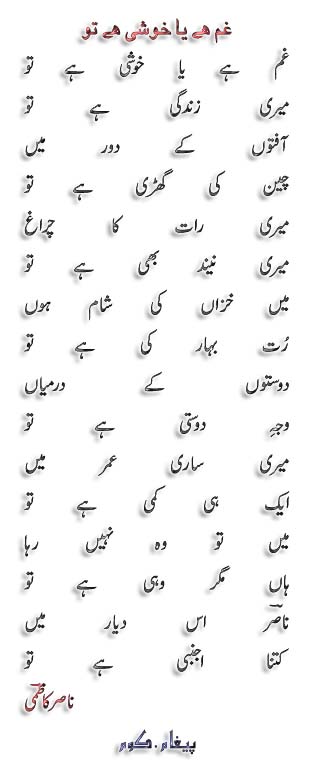 غم ہے یا خوشی ہے تو
غم ہے یا خوشی ہے تو
میری زندگی ہے تو
آفتوں کے دور میں
چین کی گھڑی ہے تو
میری رات کا چراغ
میری نیند بھی ہے تو
میں خزاں کی شام ہوں
رُت بہار کی ہے تو
دوستوں کے درمیاں
وجہِ دوستی ہے تو
میری ساری عمر میں
ایک ہی کمی ہے تو
میں تو وہ نہیں رہا
ہاں مگر وہی ہے تو
ناصرؔ اس دیار میں
کتنا اجنبی ہے تو
ناصر کاظمیؔ
پیغام.کوم